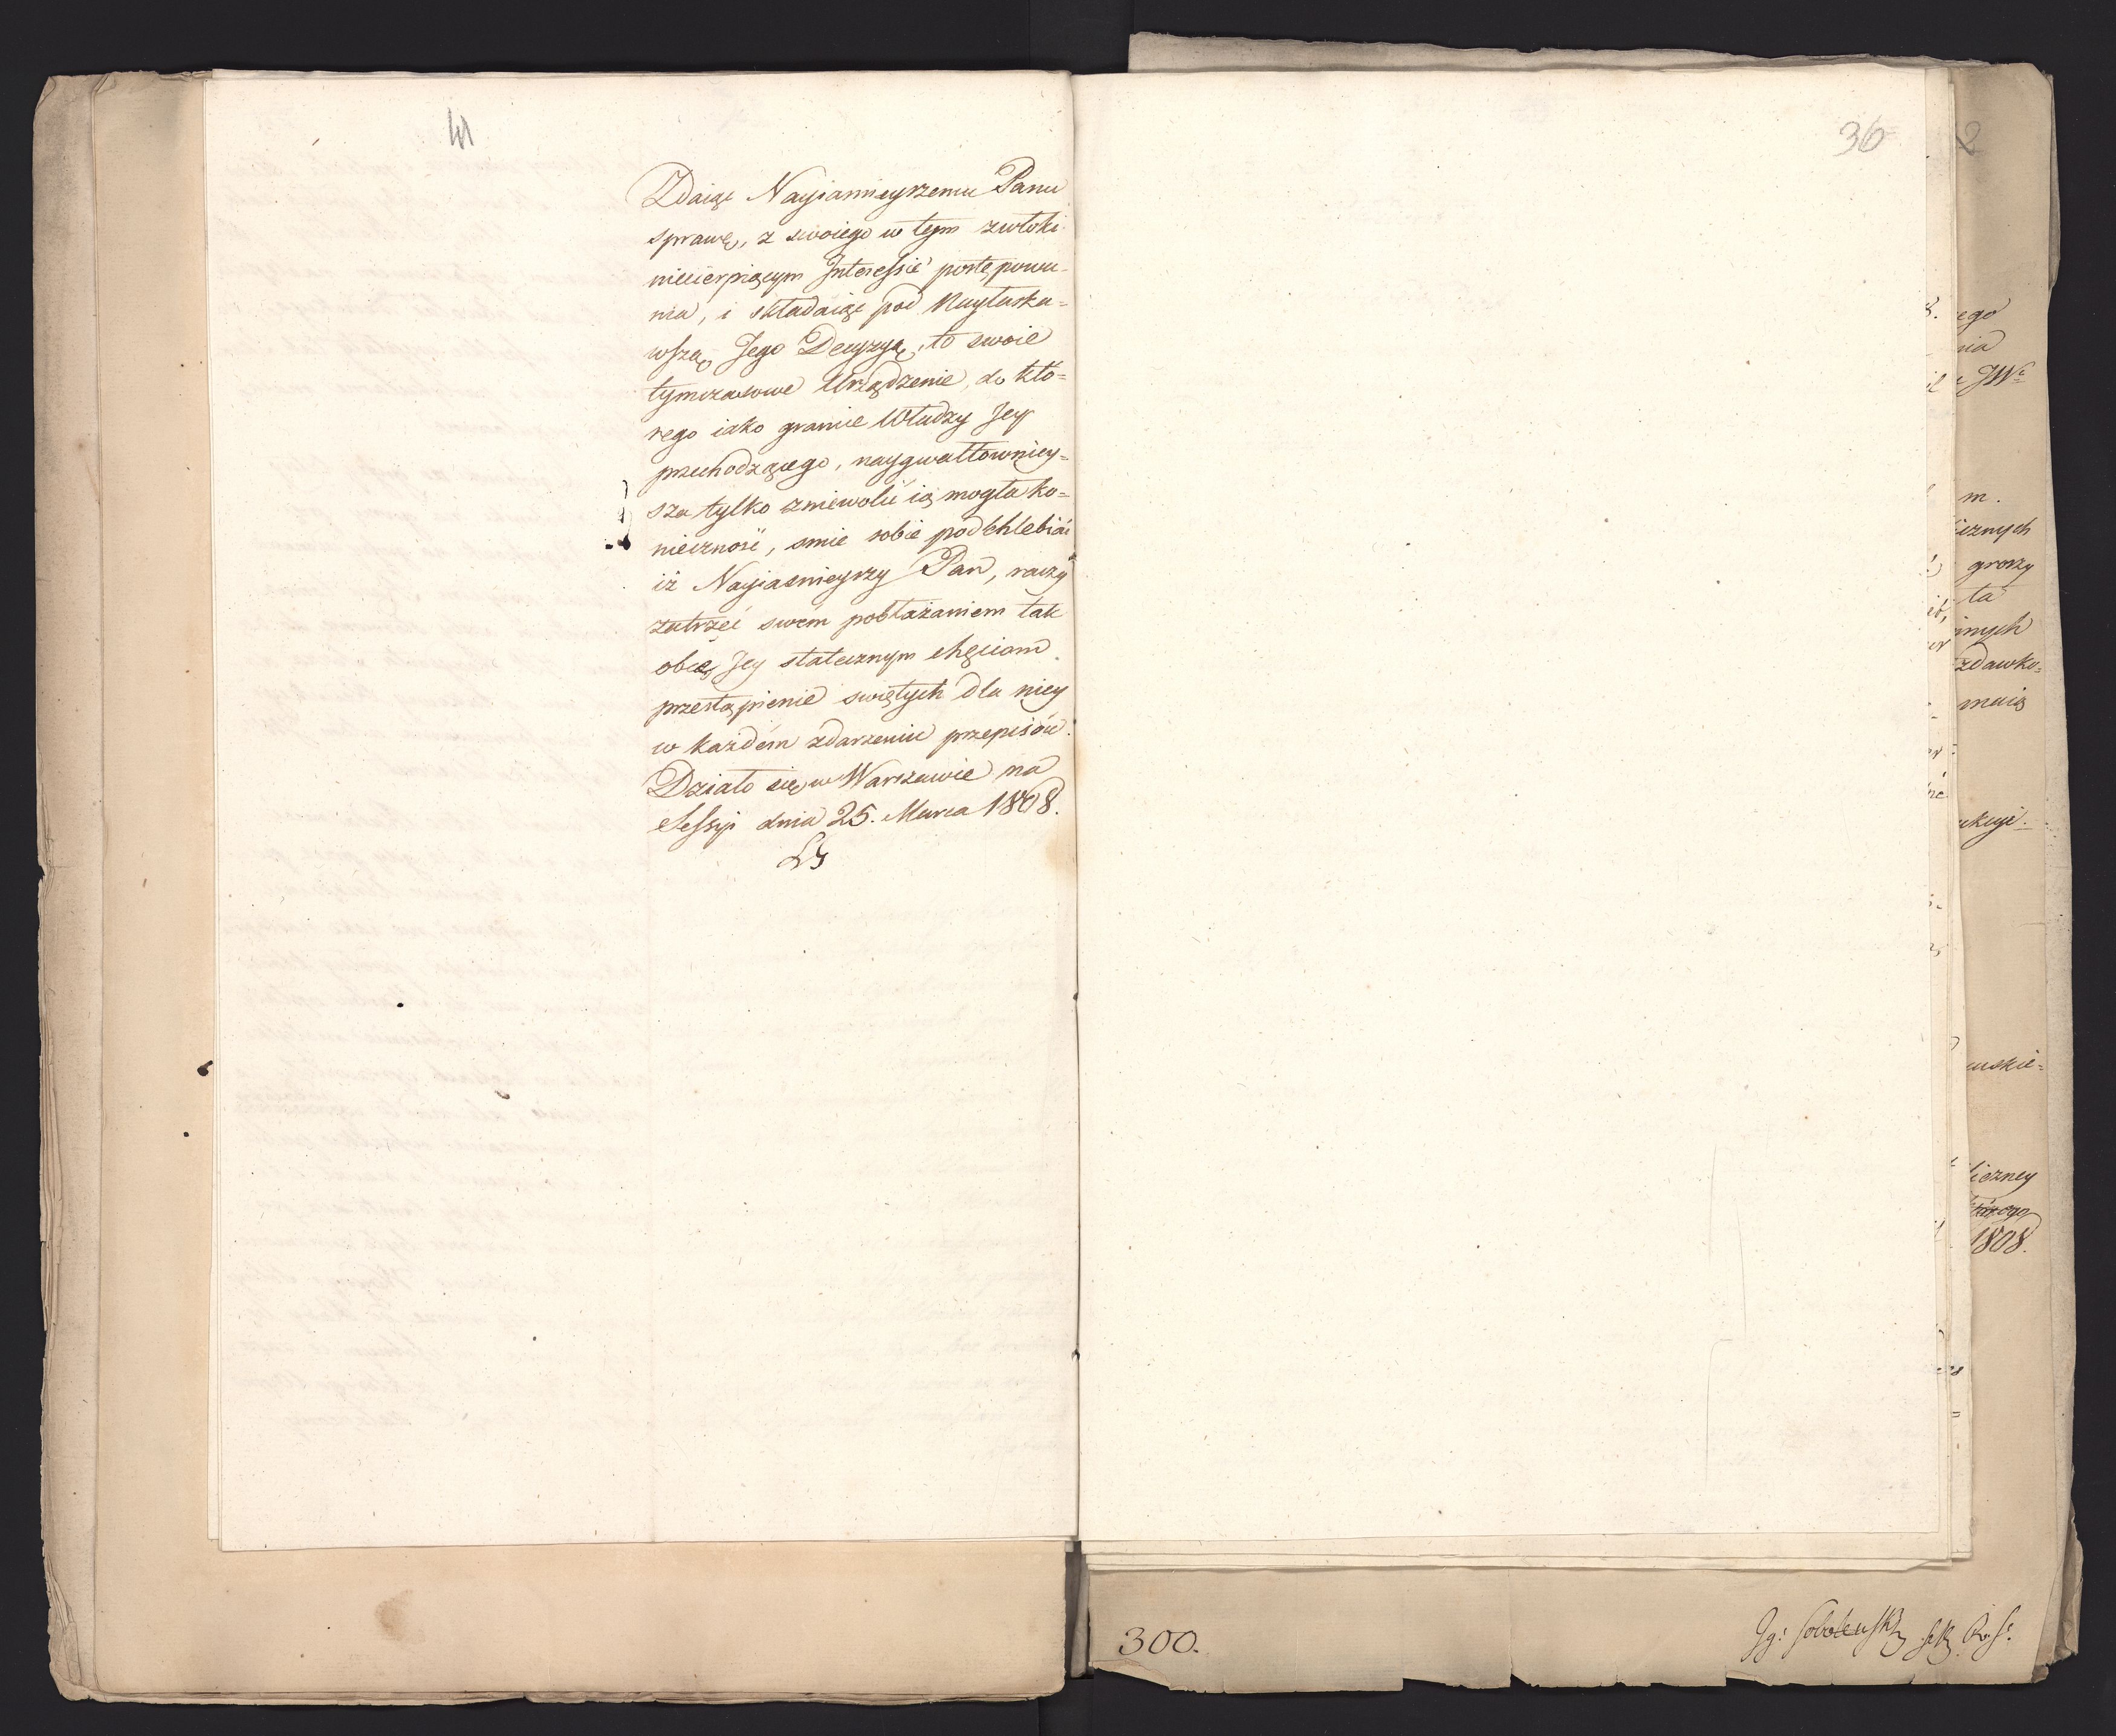 41
Zdaiąc Nayiaśnieyszemu Panu
sprawę, z swoiego w tym zwłoki
niecierpiącym Interessie postępowa-
nia, i składaiąc pod Nayłaska=
wszą Jego Decyzyą, to swoie
tymczasowe Urządzenie, do któ=
rego iako granice Władzy Jey
przechodzącego, naygwałtowniey=
sza tylko zniewolić ią mogła ko=
nieczność, smie sobie podchlebiać
iż Nayiasnieyszy Pan, raczy
zatrzeć swém pobłażaniem tak
obce Jey statecznym chęciom
przestąpienie swiętych dla niey
w każdém zdarzeniu przepisów.
Działo się w Warszawie na
Sessyi dnia 25. Marca 1808.
LS
36
2
ego
nia
JW
m.
icznych
groszy
ta
innych
zdawko=
maią
ukcye.
wskie=
liczney
którego
1808.
300.
Ig: Sobolewski Sek. R. S.